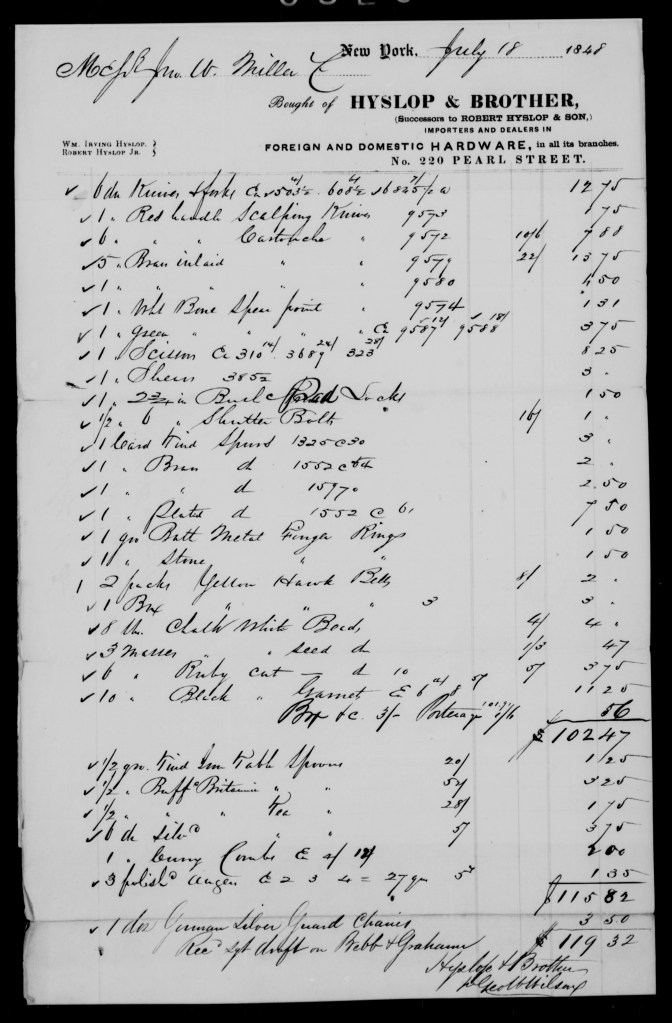 New York, July 18 1848
Jno. W. Miller
Bought of HYSLOP & BROTHER,
(Successors to ROBERT HYSLOP & SON,)
IMPORTERS AND DEALERS IN
WM. IRVING HYSLOP.
ROBERT HYSLOP JR.
FOREIGN AND DOMESTIC HARDWARE, in all its branches.
No. 220 PEARL STREET.
Knives & forks 12 75
1 " Red handle Scalping Knives 9573 1 75
6 " " " Cartouche " 9572 10/6 7 88
5 " Brass inlaid " " 9579 22/ 13 75
1 " " " " " 9580
1 " Wht Bone Spear point " 9574 1 31
1 " Green " " " " 9587 12/ 9588 18/ 3 75
1 " Scissors 310 14/ 3689 24/ 323 28/ 8 25
1 " Shears 3852 3 "
1 " Locks 1 50
1/2 " 6 " Shutter Bolts 16/ 1 "
1 Card Tind Spurs 1325 3 "
1 " Brass d 1552 2 "
1 " " d 2 50
1 " Plated d 1552 C 7 50
1 gro Batt Metal Finger Rings 1 50
" Stone " " 1 50
2 packs Yellow Hawk Bells 8/ 2 "
1 Box " " " 3 3 "
8 lbs. Chalk White Beads 4/ 4 "
3 Masses " " seed d 1/3 47
6 " Ruby cut — d 10 5/ 3 75
10 " Black " Garnet 11 25
Box &c. 3/- Porterage 1/6 56
$102 47
1/2 gro. Tind Iron Table Spoons 20/ 1 25
1/2 " Britannia " " 52/ 3 25
1/2 " " " Tea " 28/ 1 75
6 dz " " 5/ 3 75
1 " Curry Combs 2 00
3 polishd Augers 2 3 4 = 27 qrs 5 1 35
$115 82
1 doz German Silver Guard Chains 3 50
Recd draft on Bebb & Graham $119 32
Hyslop & Brother